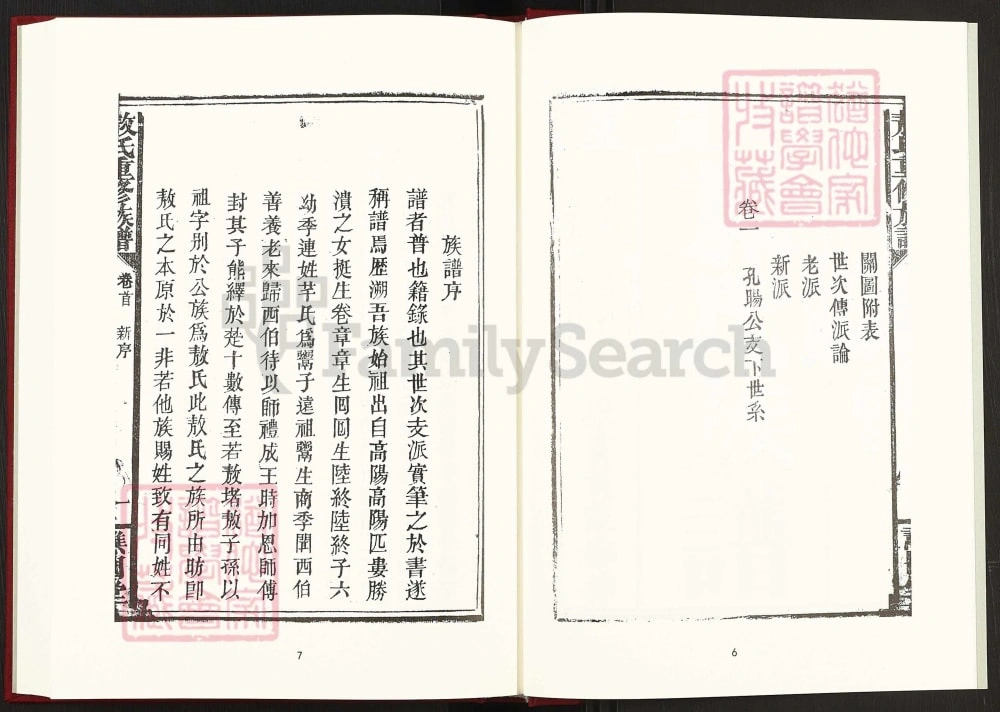 關圖附表
世次傳派論
老派
新派
卷一
孔暘公支下世系
6
族譜序
譜者普也籍錄也其世次支派實筆之於書遂
稱譜焉歷溯吾族始祖出自高陽高陽匹婁勝
潰之女挺生卷章章生囘囘生陸終陸終子六
幼季連姓芊氏爲鬻子遠祖鬻生商季聞西伯
善養老來歸西伯待以師禮成王時加恩師傅
封其子熊繹於楚十數傳至若敖堵敖子孫以
祖字別於公族爲敖氏此敖氏之族所由昉卽
敖氏之本原於一非若他族賜姓致有同姓不
敖氏重修族譜
卷首
新序
7
FamilySearch